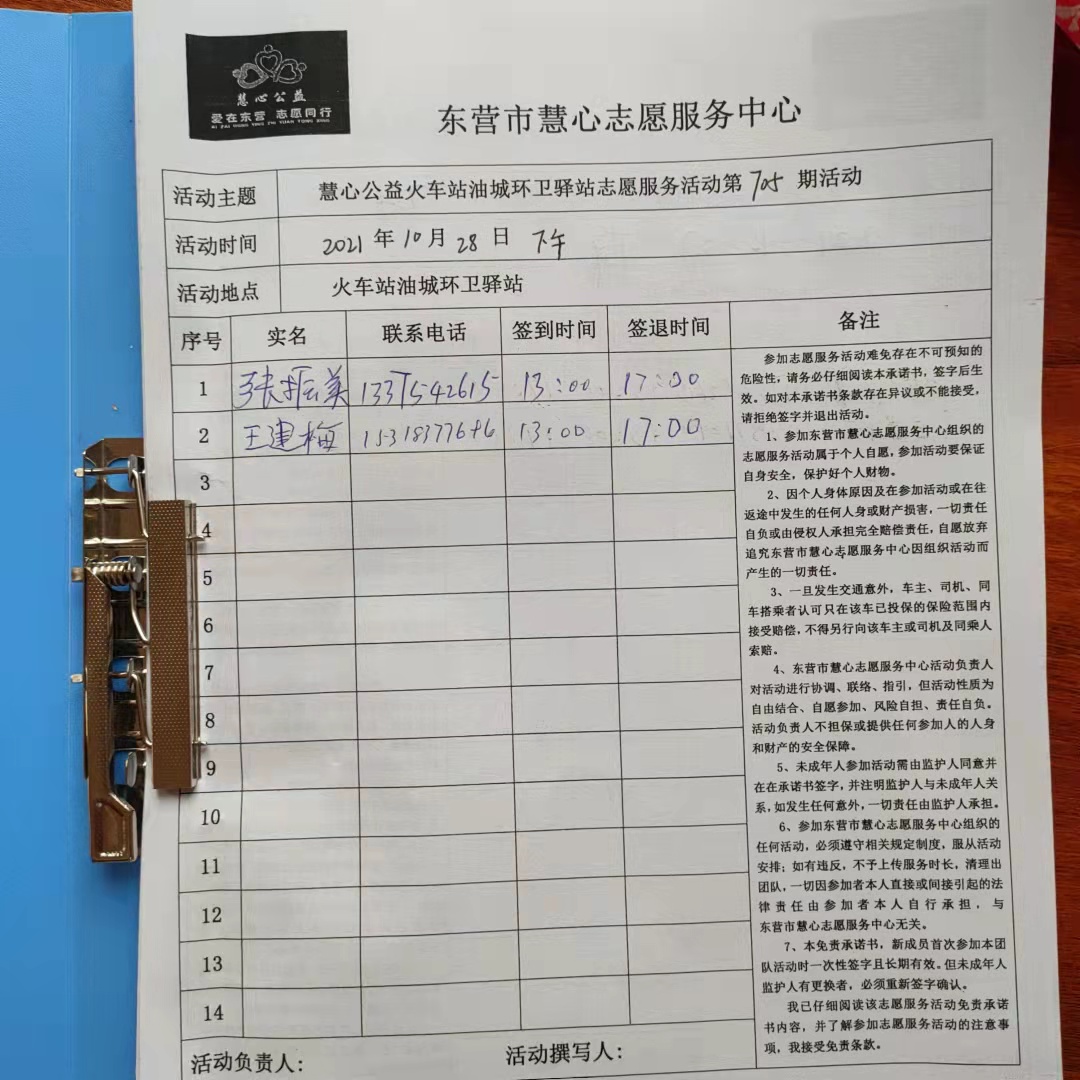 慧心公益
爱在东营 志愿同行
AI ZAI DONG YING ZHI YUAN TONG XING
东营市慧心志愿服务中心
活动主题 慧心公益火车站油城环卫驿站志愿服务活动第705期活动
活动时间 2021年10月28日 下午
活动地点 火车站油城环卫驿站
序号 实名 联系电话 签到时间 签退时间 备注
1 张振美 1337542615 13:00 17:00
2 王建梅 15318377646 13:00 17:00
3
4
5
6
7
8
9
10
11
12
13
14
参加志愿服务活动难免存在不可预知的
危险性，请务必仔细阅读本承诺书，签字后生
效。如对本承诺书条款存在异议或不能接受，
请拒绝签字并退出活动。
1、参加东营市慧心志愿服务中心组织的
志愿服务活动属于个人自愿，参加活动要保证
自身安全，保护好个人财物。
2、因个人身体原因及在参加活动或在往
返途中发生的任何人身或财产损害，一切责任
自负或由侵权人承担完全赔偿责任，自愿放弃
追究东营市慧心志愿服务中心因组织活动而
产生的一切责任。
3、一旦发生交通意外，车主、司机、同
车搭乘者认可只在该车已投保的保险范围内
接受赔偿，不得另行向该车主或司机及同乘人
索赔。
4、东营市慧心志愿服务中心活动负责人
对活动进行协调、联络、指引，但活动性质为
自由结合、自愿参加、风险自担、责任自负。
活动负责人不担保或提供任何参加人的人身
和财产的安全保障。
5、未成年人参加活动需由监护人同意并
在在承诺书签字，并注明监护人与未成年人关
系，如发生任何意外，一切责任由监护人承担。
6、参加东营市慧心志愿服务中心组织的
任何活动，必须遵守相关规定制度，服从活动
安排；如有违反，不予上传服务时长，清理出
团队，一切因参加者本人直接或间接引起的法
律责任由参加者本人自行承担，与
东营市慧心志愿服务中心无关。
7、本免责承诺书，新成员首次参加本团
队活动时一次性签字且长期有效。但未成年人
监护人有更换者，必须重新签字确认。
我已仔细阅读该志愿服务活动免责承诺
书内容，并了解参加志愿服务活动的注意事
项，我接受免责条款。
活动负责人： 活动撰写人：